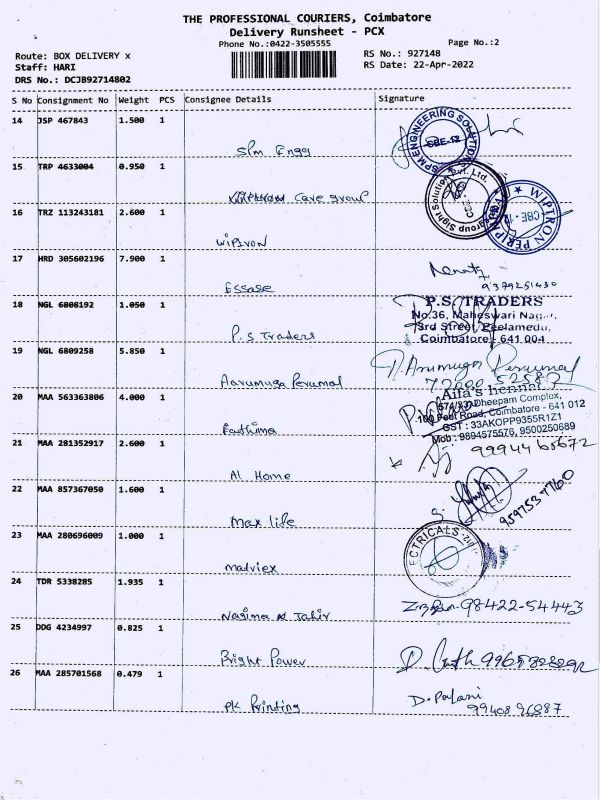 THE PROFESSIONAL COURIERS, Coimbatore
Delivery Runsheet - PCX
Phone No.:0422-3505555
Page No.:2
Route: BOX DELIVERY x
RS No.: 927148
Staff: HARI
RS Date: 22-Apr-2022
DRS No.: DCJB92714802
S No Consignment No Weight PCS Consignee Details Signature
14 JSP 467843 1.500 1
SPM ENGINEERING SOLUTION
CBE-12
Spm Engg
15 TRP 4633004 0.950 1
Sight Solution Pvt. Ltd.
Care group
16 TRZ 113243181 2.600 1
WIPTRON
CBE-12
Wiptron
17 HRD 305602196 7.900 1
9379251430
Essase
18 NGL 6808192 1.050 1
P.S. TRADERS
No.36, Maheswari Nag
3rd Street, Peelamedu,
Coimbatore - 641 004
P.S Traders
19 NGL 6809258 5.850 1
P. Arumuga Perumal
Aarumuga Perumal
20 MAA 563363806 4.000 1
574/83, Dheepam Complex,
100 Feet Road, Coimbatore - 641 012
GST : 33AKOPP9355R1Z1
Mob : 9894575576, 9500250689
Fathima
21 MAA 281352917 2.600 1
Al Home
22 MAA 857367050 1.600 1
9597537760
Max life
23 MAA 280696009 1.000 1
ECTRICALS
madviex
24 TDR 5338285 1.935 1
98422-54443
Nasima & Tahir
25 DDG 4234997 0.825 1
Bright Power
26 MAA 285701568 0.479 1
D. Palani
9940896887
PK Printing